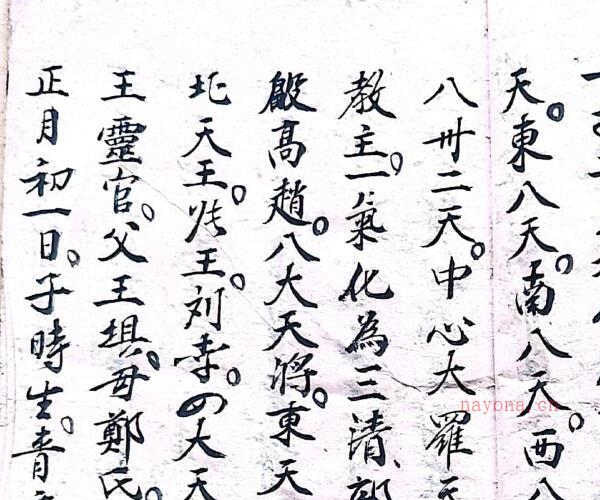 天。東八天。南八天。西八
八卅二天。中心大羅天
教主。一氣化為三清、
殷高趙。八大天將。東天
北天王。王。刘李。四大天
王靈官。父王埧。母鄭氏。
正月初一日。子時生。青
nayona.cn